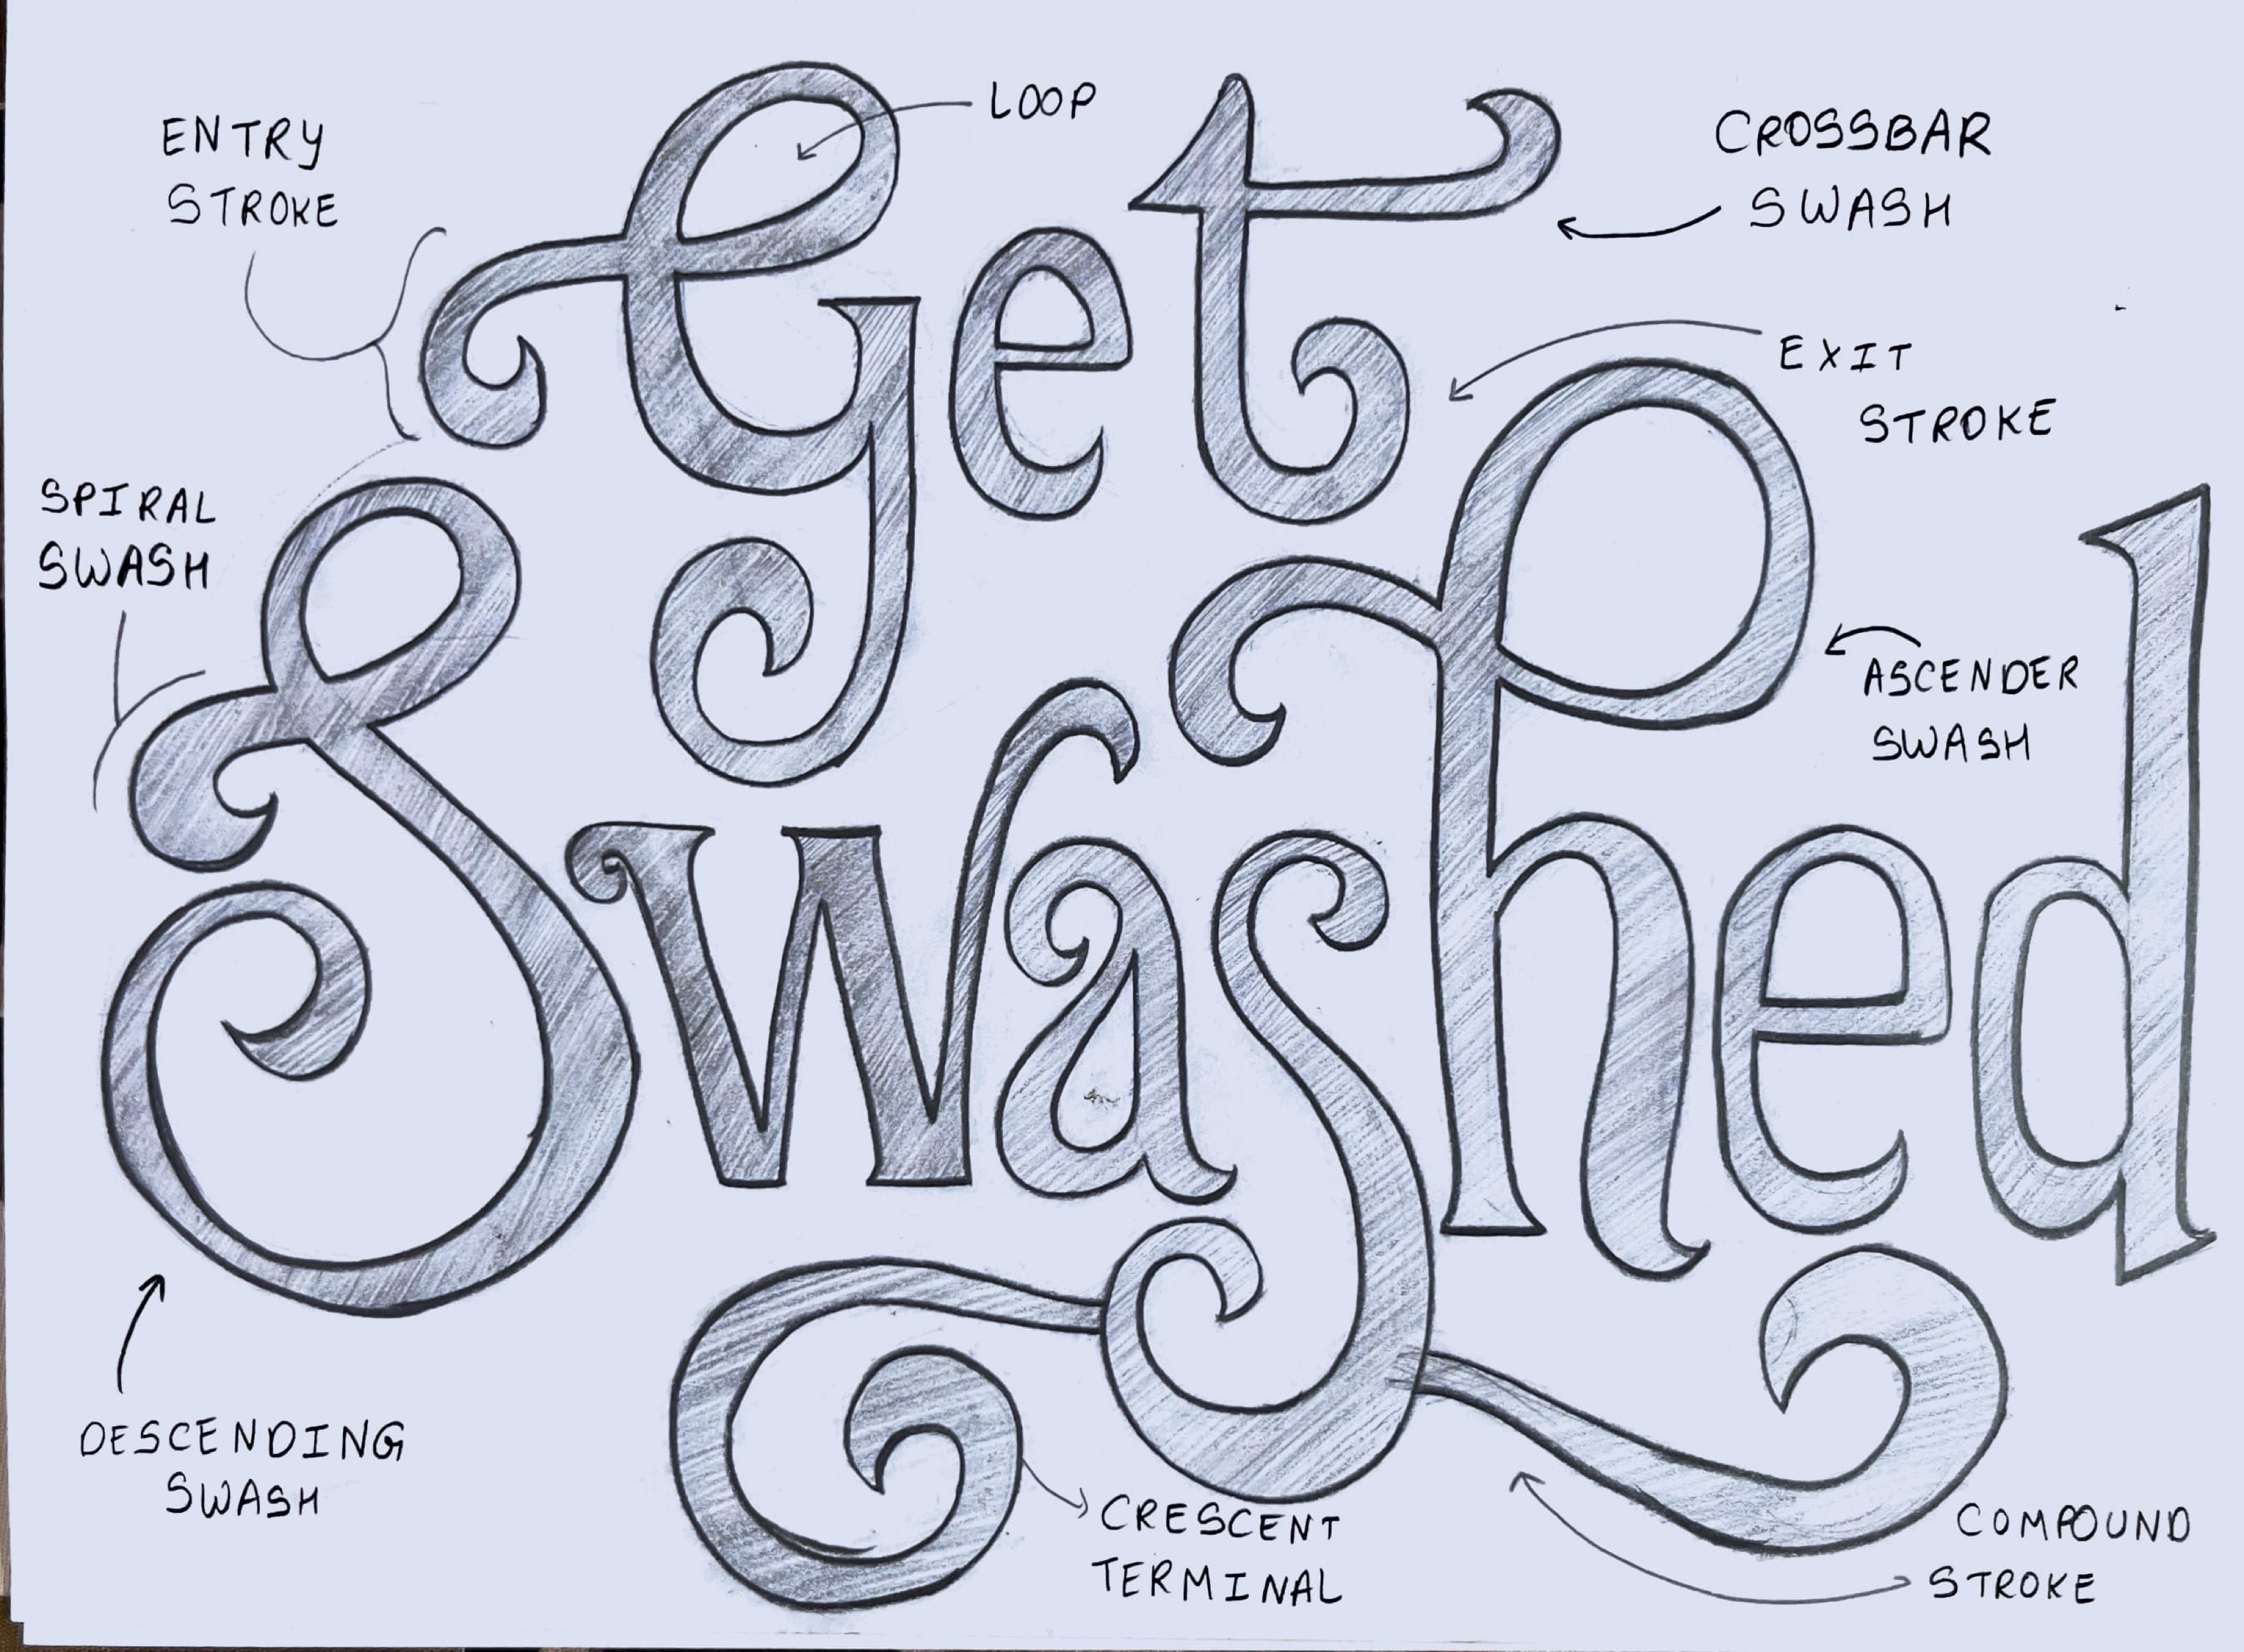 ENTRY
STROKE
LOOP
CROSSBAR
SWASH
Get
EXIT
STROKE
SPIRAL
SWASH
ASCENDER
SWASH
Swashed
DESCENDING
SWASH
CRESCENT
TERMINAL
COMPOUND
STROKE